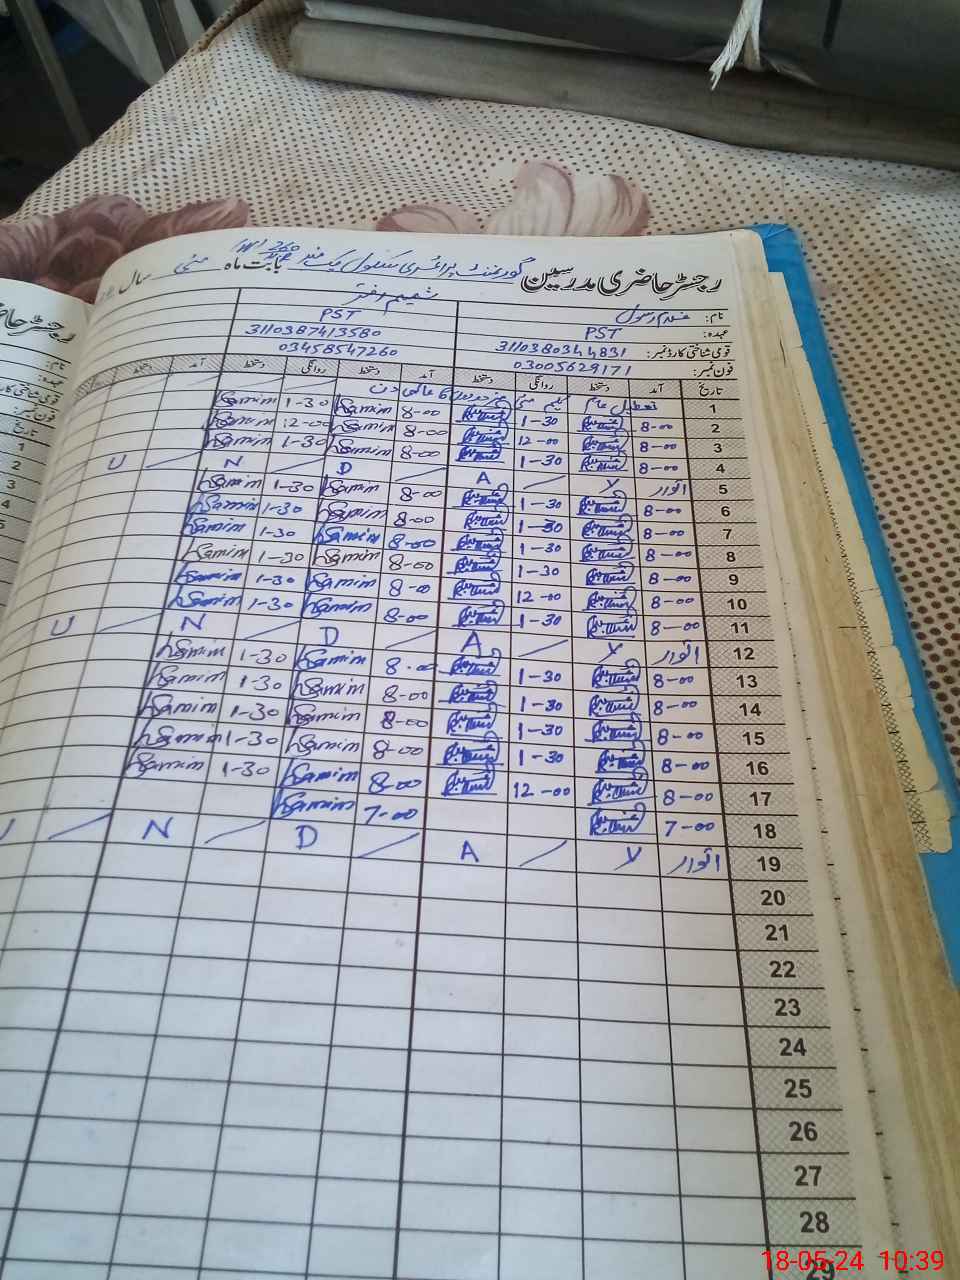 رجسٹر حاضری مدرسین گورنمنٹ پرائمری سکول چک نمبر 260 بابت ماہ مئی سال
نام: غلام رسول شمیم اختر
عہدہ: PST PST
قومی شناختی کارڈ نمبر: 3110380344831 3110387413580
فون نمبر: 03005629171 03458547260
تاریخ آمد دستخط روانگی دستخط آمد دستخط روانگی دستخط آمد دستخط
1 تعطیل عام یکم مئی مزدوروں کا عالمی دن
2 8-00 1-30 8-00 Samim 1-30 Samim
3 8-00 12-00 8-00 Samim 12-00 Samim
4 8-00 1-30 8-00 Samim 1-30 Samim
5 اتوار لا / A / D / N / U
6 8-00 1-30 8-00 Samim 1-30 Samim
7 8-00 1-30 8-00 Samim 1-30 Samim
8 8-00 1-30 8-00 Samim 1-30 Samim
9 8-00 1-30 8-00 Samim 1-30 Samim
10 8-00 12-00 8-00 Samim 1-30 Samim
11 8-00 1-30 8-00 Samim 1-30 Samim
12 اتوار لا / A / D / N / U
13 8-00 1-30 8-00 Samim 1-30 Samim
14 8-00 1-30 8-00 Samim 1-30 Samim
15 8-00 1-30 8-00 Samim 1-30 Samim
16 8-00 1-30 8-00 Samim 1-30 Samim
17 8-00 12-00 8-00 Samim 1-30 Samim
18 7-00 7-00 Samim
19 اتوار لا / A / D / N /
20
21
22
23
24
25
26
27
28
29
18-05-24 10:39